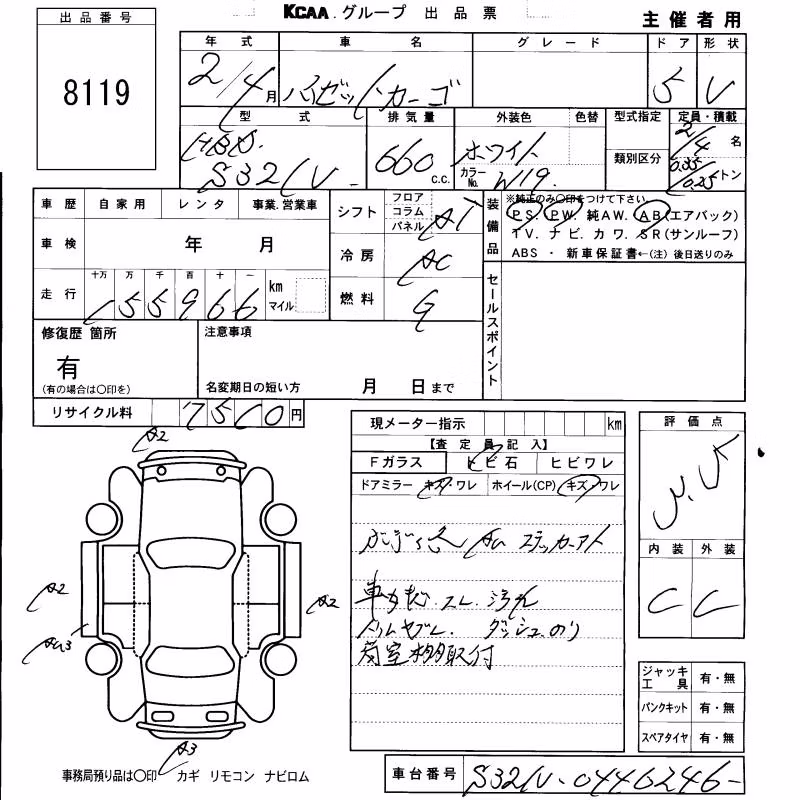 KCAA. グループ 出品票
主催者用
出品番号
8119
年式 車名 グレード ドア 形状
2/4月 ハイゼットカーゴ 5 V
型式 排気量 外装色 色替 型式指定 定員・積載
HBD. S321V 660 c.c. ホワイト カラーNo. W19. 類別区分 2/4名 0.35/0.25トン
車歴 自家用 レンタ 事業.営業車
車検 年 月
走行 十万 万 千 百 十 一
155966 km マイル
シフト フロア コラム パネル AT
冷房 AC
燃料 G
装備品 ※純正のみ〇印をつけて下さい。
PS. PW. 純AW. AB(エアバック)
TV. ナビ. カワ. SR(サンルーフ)
ABS ・ 新車保証書←(注)後日送りのみ
セールスポイント
修復歴 箇所
有
(有の場合は〇印を)
注意事項
名変期日の短い方 月 日まで
リサイクル料 7510円
現メーター指示 km
【査定員記入】
Fガラス トビ石 ヒビワレ
ドアミラー キズ・ワレ ホイール(CP) キズ・ワレ
ステッカーアト
スレ. 汚れ
ダッシュのり
荷室棚取付
評価点
3.5
内装 外装
C C
ジャッキ工具 有・無
パンクキット 有・無
スペアタイヤ 有・無
A2
A2
A2
AU3
A3
事務局預り品は〇印 カギ リモコン ナビロム
車台番号 S321V-0446246-